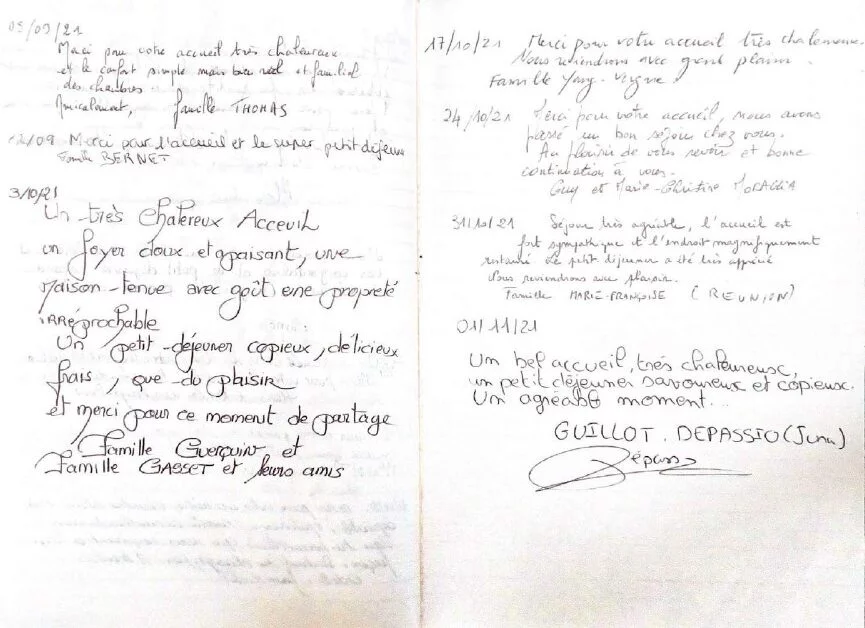 05/09/21
Merci pour votre accueil très chaleureux
et le confort simple mais bien réel et familial
des chambres.
Amicalement, famille THOMAS
12/09 Merci pour l'accueil et le super petit déjeuner
Famille BERNET
3/10/21
Un très chalereux Acceuil
un foyer doux et apaisant, une
maison tenue avec goût ene propreté
iRRéprochable
Un petit-déjeuner copieux, délicieux
frais, que du plaisir
et merci pour ce moment de partage
Famille Guerquin et
Famille GASSET et leurs amis
17/10/21 Merci pour votre accueil très chaleureux.
Nous reviendrons avec grand plaisir.
Famille
24/10/21 Merci pour votre accueil, nous avons
passé un bon séjour chez vous.
Au plaisir de vous revoir et bonne
continuation à vous.
Guy et Marie-Christine MORAGLIA
31/10/21 Séjour très agréable, l'accueil est
fort sympathique et l'endroit magnifiquement
restauré. Le petit déjeuner a été très apprécié
Nous reviendrons avec plaisir.
Famille MARIE-FRANÇOISE (REUNION)
01/11/21
Un bel accueil, très chaleureux,
un petit déjeuner savoureux et copieux.
Un agréable moment...
GUILLOT. DEPASSIO (Jura)